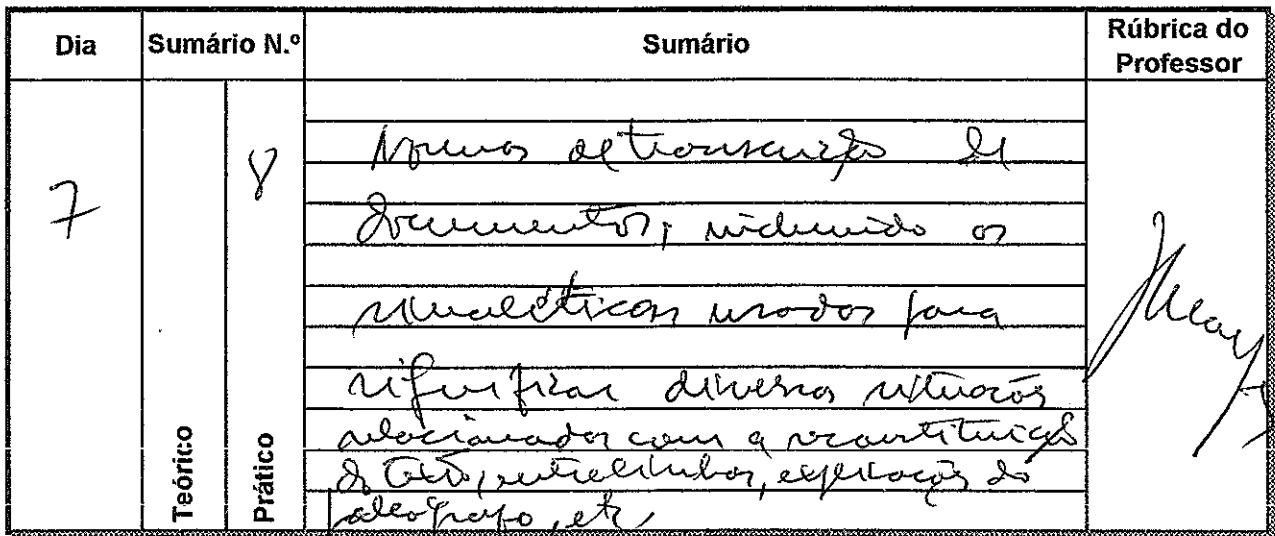 Dia Sumário N.º Sumário Rúbrica do Professor
Teórico
Prático
7 8
Normas de transcrição de
documentos, incluindo os
sinaléticos usados para
significar diversas situações
relacionadas com a reconstituição
do texto, entrelinhas, explicações do
paleógrafo, etc